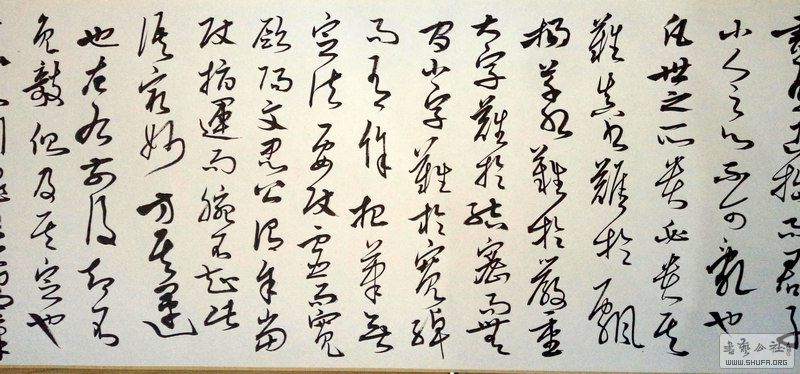 書有工拙而君子
小人之心不可亂也
凡世之所貴必貴其
難真書難於飄
揚草書難於嚴重
大字難於結密而無
間小字難於寬綽
而有餘把筆無
定法要使虛而寬
歐陽文忠公謂余當
使指運而腕不知此
語最妙方其運
也左右前後却不
免欹側及其定也
書藝公社
WWW.SHUFA.ORG